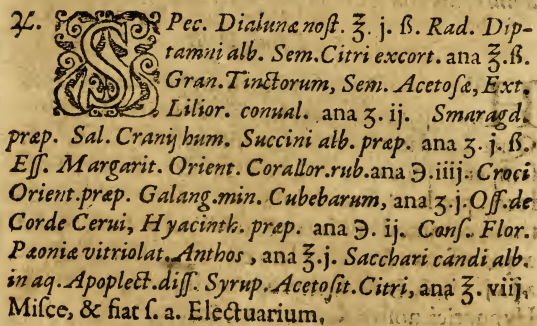 ♃. SPec. Dialunæ noſt. ℥. j. ß. Rad. Dip-
tamni alb. Sem. Citri excort. ana ℥. ß.
Gran. Tinctorum, Sem. Acetoſæ, Ext.
Lilior. conual. ana ʒ. ij. Smaragd.
præp. Sal. Cranij hum. Succini alb. præp. ana ʒ. j. ß.
Eſſ. Margarit. Orient. Corallor. rub. ana ℈. iiij. Croci
Orient. præp. Galang. min. Cubebarum, ana ʒ. j. Oſſ. de
Corde Cerui, Hyacinth. præp. ana ℈. ij. Conſ. Flor.
Pæoniæ vitriolat. Anthos, ana ℥. j. Sacchari candi alb.
in aq. Apoplect. diſſ. Syrup. Acetoſit. Citri, ana ℥. viij.
Miſce, & fiat ſ. a. Electuarium.